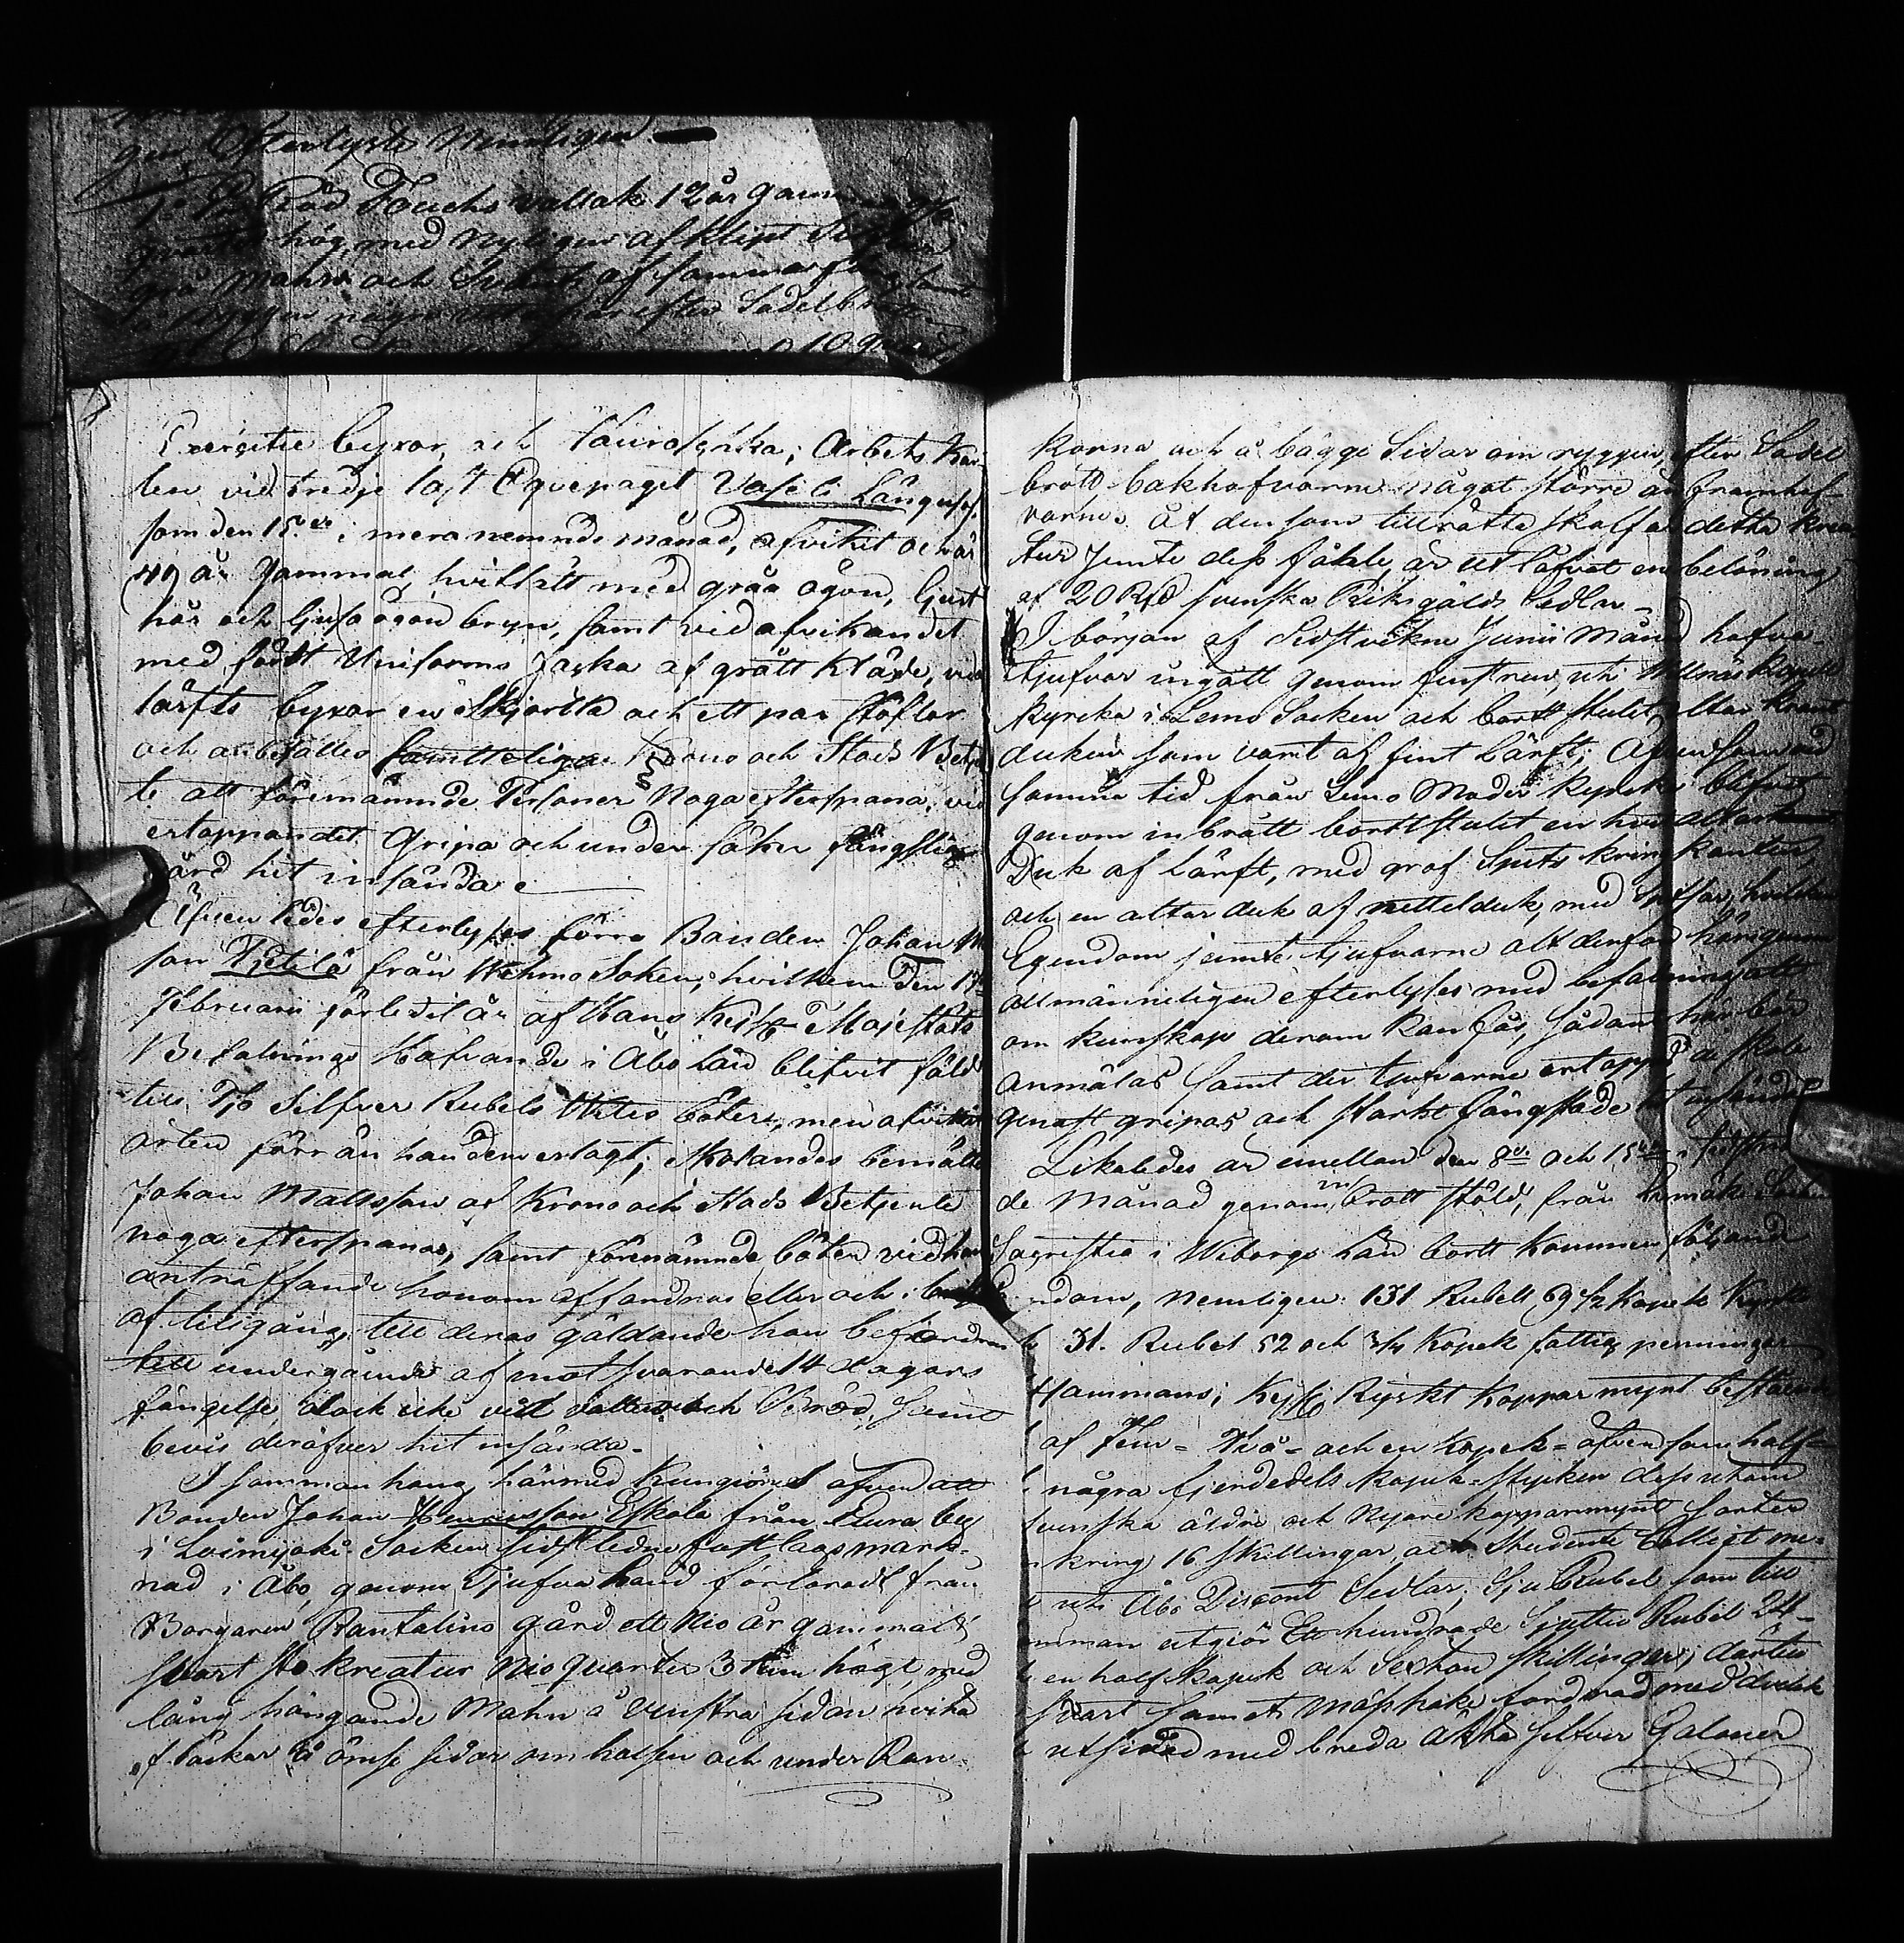 gen Efterlyste Nemligen
1o En Röd Fouchs vallak 12 år gammal
quarter hög, med nyligen afklipt
grå Mahn och Svants af samma
på ryggen några efter Sadelbrott
10 quarter
Exercitie byxor, och lärfsskjorta; Arbets Kar-
len vid tredje last Equepaget Vasili Länguseff,
som den 15de i mera nemnde månad, afvikit och är
40 år Gammal, hvitlätt med gråa ögon, ljust
hår och ljusa ögonbryn, samt vid afvikandet
med fördt Uniforms Jacka af grått Kläde, vida
lärfts byxor en Skjorta och ett par Stöflor
och anbefalles samtteliga Krono och Stads Betjen
te att förenämnde Personer Noga efterspana, vid
ertappandet Gripa och under säker fångslig
vård hit insända.
Äfven ledes efterlyses förre Bonden Johan M
son Tietilä från Wehmo Soken, hvilken den 17de
Februarii förledit år af Hans Kejs. Majestäts
Befalnings Hafvande i Åbo Län blifvit fäld
till Tio Silfver Rubels Wites böter, men afvikit
orten förr än han dem erlagt; Skolandes bemälte
Johan Mattsson af Krono och Stads Betjente
noga efterspanas, samt förenämnde böter vid hans
anträffande honom affordras eller och i brist
af tillgång, till deras gäldande han befordras
till undergående af motsvarande 14 dagars
fängelse, dock icke vid vatten och Bröd, samt
bevis deröfver hit insända.
I sammanhang härmed Kungiöres äfven att
Bonden Johan Henricsson Eskola från Eura by
i Loimjoki Socken sidstledne fastlagsmark-
nad i Åbo, genom Tjufvahand förloradt från
Borgaren Rantalins gård ett Nio år gammalt
svart Sto kreatur Nio quarter 3 tum högt, med
lång hängande Mahn å venstra sidan hvita
fläckar å ömse sidor om halsen och under Ran-
korna och å bägge Sidor om ryggen, efter Sadel
brott, bakhofvarne något större än framhof-
varne. Åt den som tillrätta skaffar detta krea
tur Jemte dess fåhle, är utlofvat en belöning
af 20 Rd svenska Riksgälds Sedlar.
I början af Sidstvekne Junii Månad hafva
tjufvar ingått genom fenstren, uti Willnäs Kapell
Kyrcka i Lemo Socken och bortt stulit altar
duken som varit af fint Lärft; Äfvensom vid
samma tid från Lemo Moder kyrcka blifvit
genom inbrått borttstulit en hvit altar
Duk af Lärft, med graf Spits kring kanten,
och en altar duk af nettelduk, med Spitsar, hvilken
Egendom jemte tjufvarne altderföre härigenom
allmänneligen efterlyses med befalning att
om kunskap derom kan fås, sådant här bör
anmälas samt der tjufvarne ertappas, de skola
genast gripas och starkt fängslade hit insändas
Likaledes är emellan den 8de och 15de i sistne
de Månad genom in brott stöld, från
Sacristia i Wiborgs Län bortt kommen följande
Egendom, nemligen: 131 Rubell 69 1/2 kopek Kyrko
31. Rubel 52 och 3/4 Kopek fattig penningar
Hammans; Kejs. Ryskt Koppar mynt bestående
af Fem- Två- och en kopek- äfvensom half-
några fjerdedels kopek-stycken dessutom
svenska äldre och Nyare kopparmynt sorter
omkring 16 skillingar och Studente
uti Åbo Discont Sedlar; Sju Rubel som till
samman utgiör Etthundrade Sjuttio Rubel 24
en half kopek och Sexton Skillingar; dertill
svart Samets Mässhake fordrad med
utsirad med breda äkta Silfver Galoner